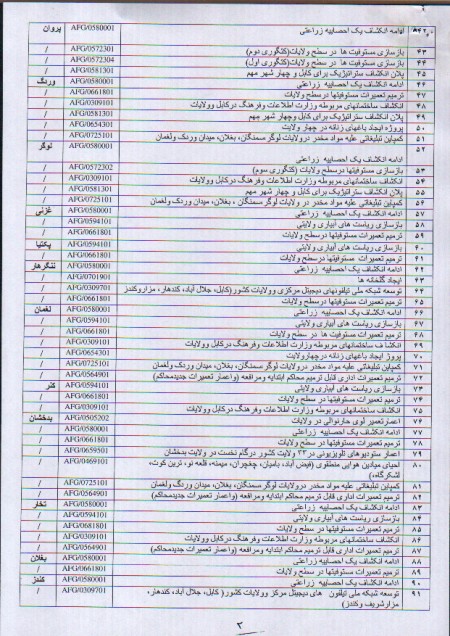 ۴۲ ادامه انکشاف یک احصاییه زراعتی AFG/0580001 پروان
۴۳ بازسازی مستوفیت ها در سطح ولایات(کتگوری دوم) AFG/0572301 /
۴۴ بازسازی مستوفیت ها در سطح ولایات(کتگوری اول) AFG/0572304 /
۴۵ پلان انکشاف ستراتیژیک برای کابل و چهار شهر مهم AFG/0581301 /
۴۶ ادامه انکشاف یک احصاییه زراعتی AFG/0580001 وردگ
۴۷ ترمیم تعمیرات مستوفیتها درسطح ولایات AFG/0661801 /
۴۸ انکشاف ساختمانهای مربوطه وزارت اطلاعات وفرهنگ درکابل وولایات AFG/0309101 /
۴۹ پلان انکشاف ستراتیژیک برای کابل وچهار شهر مهم AFG/0581301 /
۵۰ پروژه ایجاد باغهای زنانه در چهار ولایت AFG/0654301 /
۵۱ کمپاین تبلیغاتی علیه مواد مخدر درولایات لوگر سمنگان، بغلان، میدان وردگ ولغمان AFG/0725101 /
۵۲ ادامه انکشاف یک احصاییه زراعتی AFG/0580001 لوگر
۵۳ بازسازی مستوفیتها درسطح ولایات (کتگوری سوم) AFG/0572302 /
۵۴ انکشاف ساختمانهای مربوطه وزارت اطلاعات وفرهنگ درکابل وولایات AFG/0309101 /
۵۵ پلان انکشاف ستراتیژیک برای کابل و چهار شهر مهم AFG/0581301 /
۵۶ کمپاین تبلیغاتی علیه مواد مخدر در ولایات لوگر سمنگان ، بغلان، میدان وردگ ولغمان AFG/0725101 /
۵۷ ادامه انکشاف یک احصاییه زراعتی AFG/0580001 غزنی
۵۸ بازسازی ریاست های آبیاری ولایتی AFG/0594101 /
۵۹ ترمیم تعمیرات مستوفیتها در سطح ولایات AFG/0661801 /
۶۰ بازسازی ریاست های آبیاری ولایتی AFG/0594101 پکتیا
۶۱ ترمیم تعمیرات مستوفیتها درسطح ولایات AFG/0661801 /
۶۲ ادامه انکشاف یک احصاییه زراعتی AFG/0580001 ننگرهار
۶۳ ایجاد گلخانه ها AFG/0701901 /
۶۴ توسعه شبکه ملی تیلفونهای دیجیتل مرکزی وولایات کشور(کابل، جلال آباد، کندهار، مزاروکندز AFG/0309701 /
۶۵ ترمیم تعمیرات مستوفیتها در سطح ولایات AFG/0661801 /
۶۶ ادامه انکشاف یک احصاییه زراعتی AFG/0580001 لغمان
۶۷ بازسازی ریاست های آبیاری ولایتی AFG/0594101 /
۶۸ ترمیم تعمیرات مستوفیت ها در سطح ولایات AFG/0661801 /
۶۹ انکشاف ساختمانهای مربوطه وزارت اطلاعات وفرهنگ درکابل وولایات AFG/0309101 /
۷۰ پروژ ایجاد باغهای زنانه در چهارولایت AFG/0654301 /
۷۱ کمپاین تبلیغاتی علیه مواد مخدر درولایات لوگر سمنگان، بغلان، میدان وردگ ولغمان AFG/0725101 /
۷۲ ترمیم تعمیرات اداری قابل ترمیم محاکم ابتدایه ومرافعه (واعمار تعمیرات جدیدمحاکم) AFG/0564901 /
۷۳ بازسازی ریاست های آبیاری ولایتی AFG/0594101 کنر
۷۴ ترمیم تعمیرات مستوفیتها در سطح ولایات AFG/0661801 /
۷۵ انکشاف ساختمانهای مربوطه وزارت اطلاعات وفرهنگ درکابل وولایات AFG/0309101 /
۷۶ اعمارتعمیر لوی حارنوالی در ولایات AFG/0505202 بدخشان
۷۷ ادامه انکشاف یک احصاییه زراعتی AFG/0580001 /
۷۸ ترمیم تعمیرات مستوفیتها در سطح ولایات AFG/0661801 /
۷۹ اعمار ستودیوهای تلویزیونی در۲۳ ولایت کشور درگام نخست در ولایت بدخشان AFG/0659501 /
۸۰ احیای میادین هوایی منطقوی (فیض آباد، بامیان، چغچران، میمنه، قلعه نو، ترین کوت، لشکرگاه،) AFG/0469101 /
۸۱ کمپاین تبلیغاتی علیه مواد مخدر درولایات لوگر سمنگان، بغلان، میدان وردگ ولغمان AFG/0725101 /
۸۲ ترمیم تعمیرات اداری قابل ترمیم محاکم ابتدایه ومرافعه (واعمار تعمیرات جدیدمحاکم) AFG/0564901 /
۸۳ ادامه انکشاف یک احصاییه زراعتی AFG/0580001 تخار
۸۴ بازسازی ریاست های آبیاری ولایتی AFG/0594101 /
۸۵ ترمیم تعمیرات مستوفیتها در سطح ولایات AFG/0681801 /
۸۶ انکشاف ساختمانهای مربوطه وزارت اطلاعات وفرهنگ درکابل وولایات AFG/0309101 /
۸۷ ترمیم تعمیرات اداری قابل ترمیم محاکم ابتدایه ومرافعه (واعمار تعمیرات جدیدمحاکم) AFG/0564901 /
۸۸ ادامه انکشاف یک احصاییه زراعتی AFG/0580001 بغلان
۸۹ ترمیم تعمیرات مستوفیتها در سطح ولایات AFG/0661801 /
۹۰ ادامه انکشاف یک احصاییه زراعتی AFG/0580001 کندز
۹۱ توسعه شبکه ملی تیلفون های دیجیتل مرکز وولایات کشور( کابل، جلال آباد، کندهار، مزارشریف وکندز) AFG/0309701 /
۳